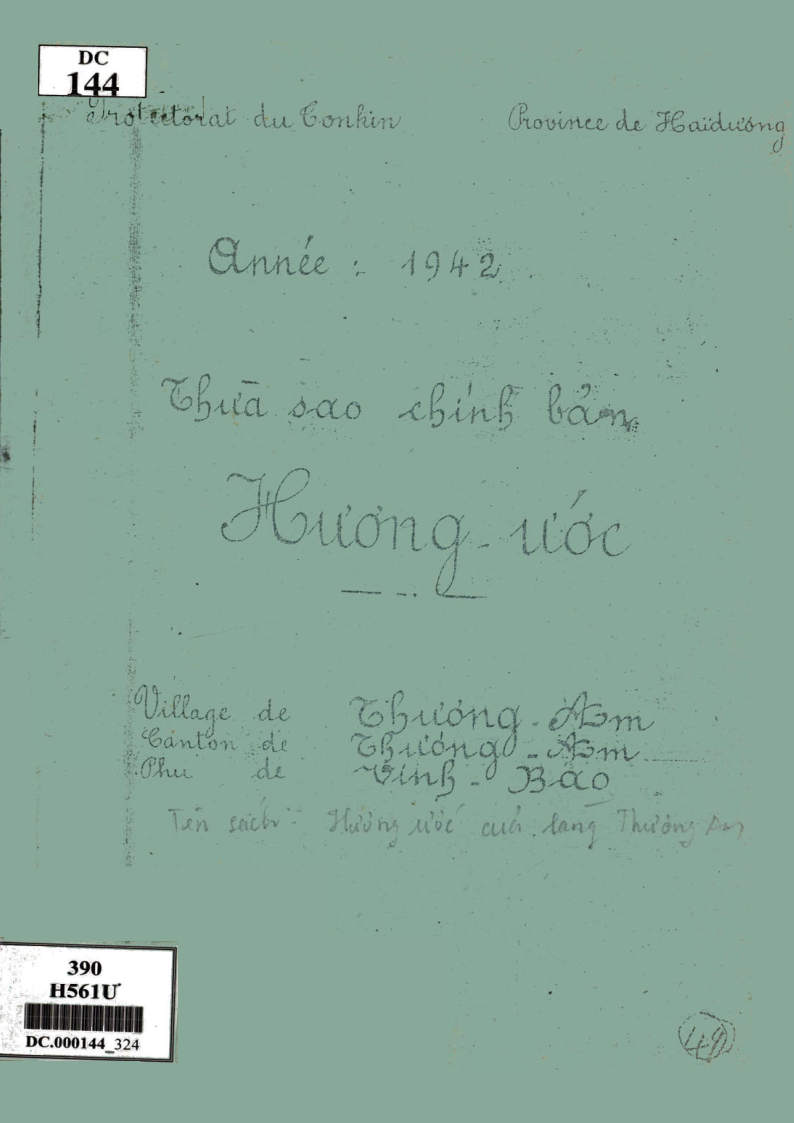 DC
144
Protectorat du Tonkin Province de Haïdương
Année : 1942
Thừa sao chính bản
Hương-ước
Village de Thượng-Am
Canton de Thượng-Am
Phu de Vĩnh-Bảo
Tên sách: Hương ước của làng Thượng Am
390
H561Ư
DC.000144_324
49